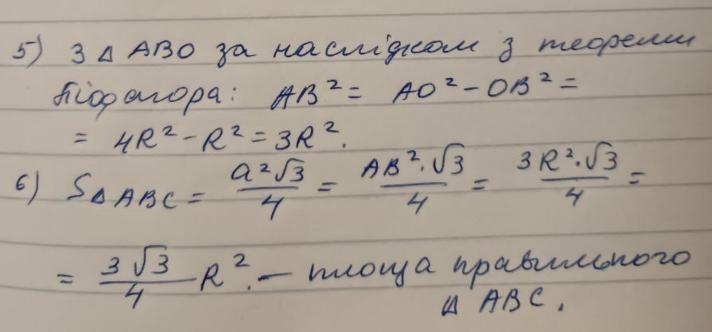 5) З △ ABO за наслідком з теореми
Піфагора: AB² = AO² - OB² =
= 4R² - R² = 3R².
6) S△ABC = a²√3/4 = AB²·√3/4 = 3R²·√3/4 =
= 3√3/4 R². — площа правильного
△ ABC.